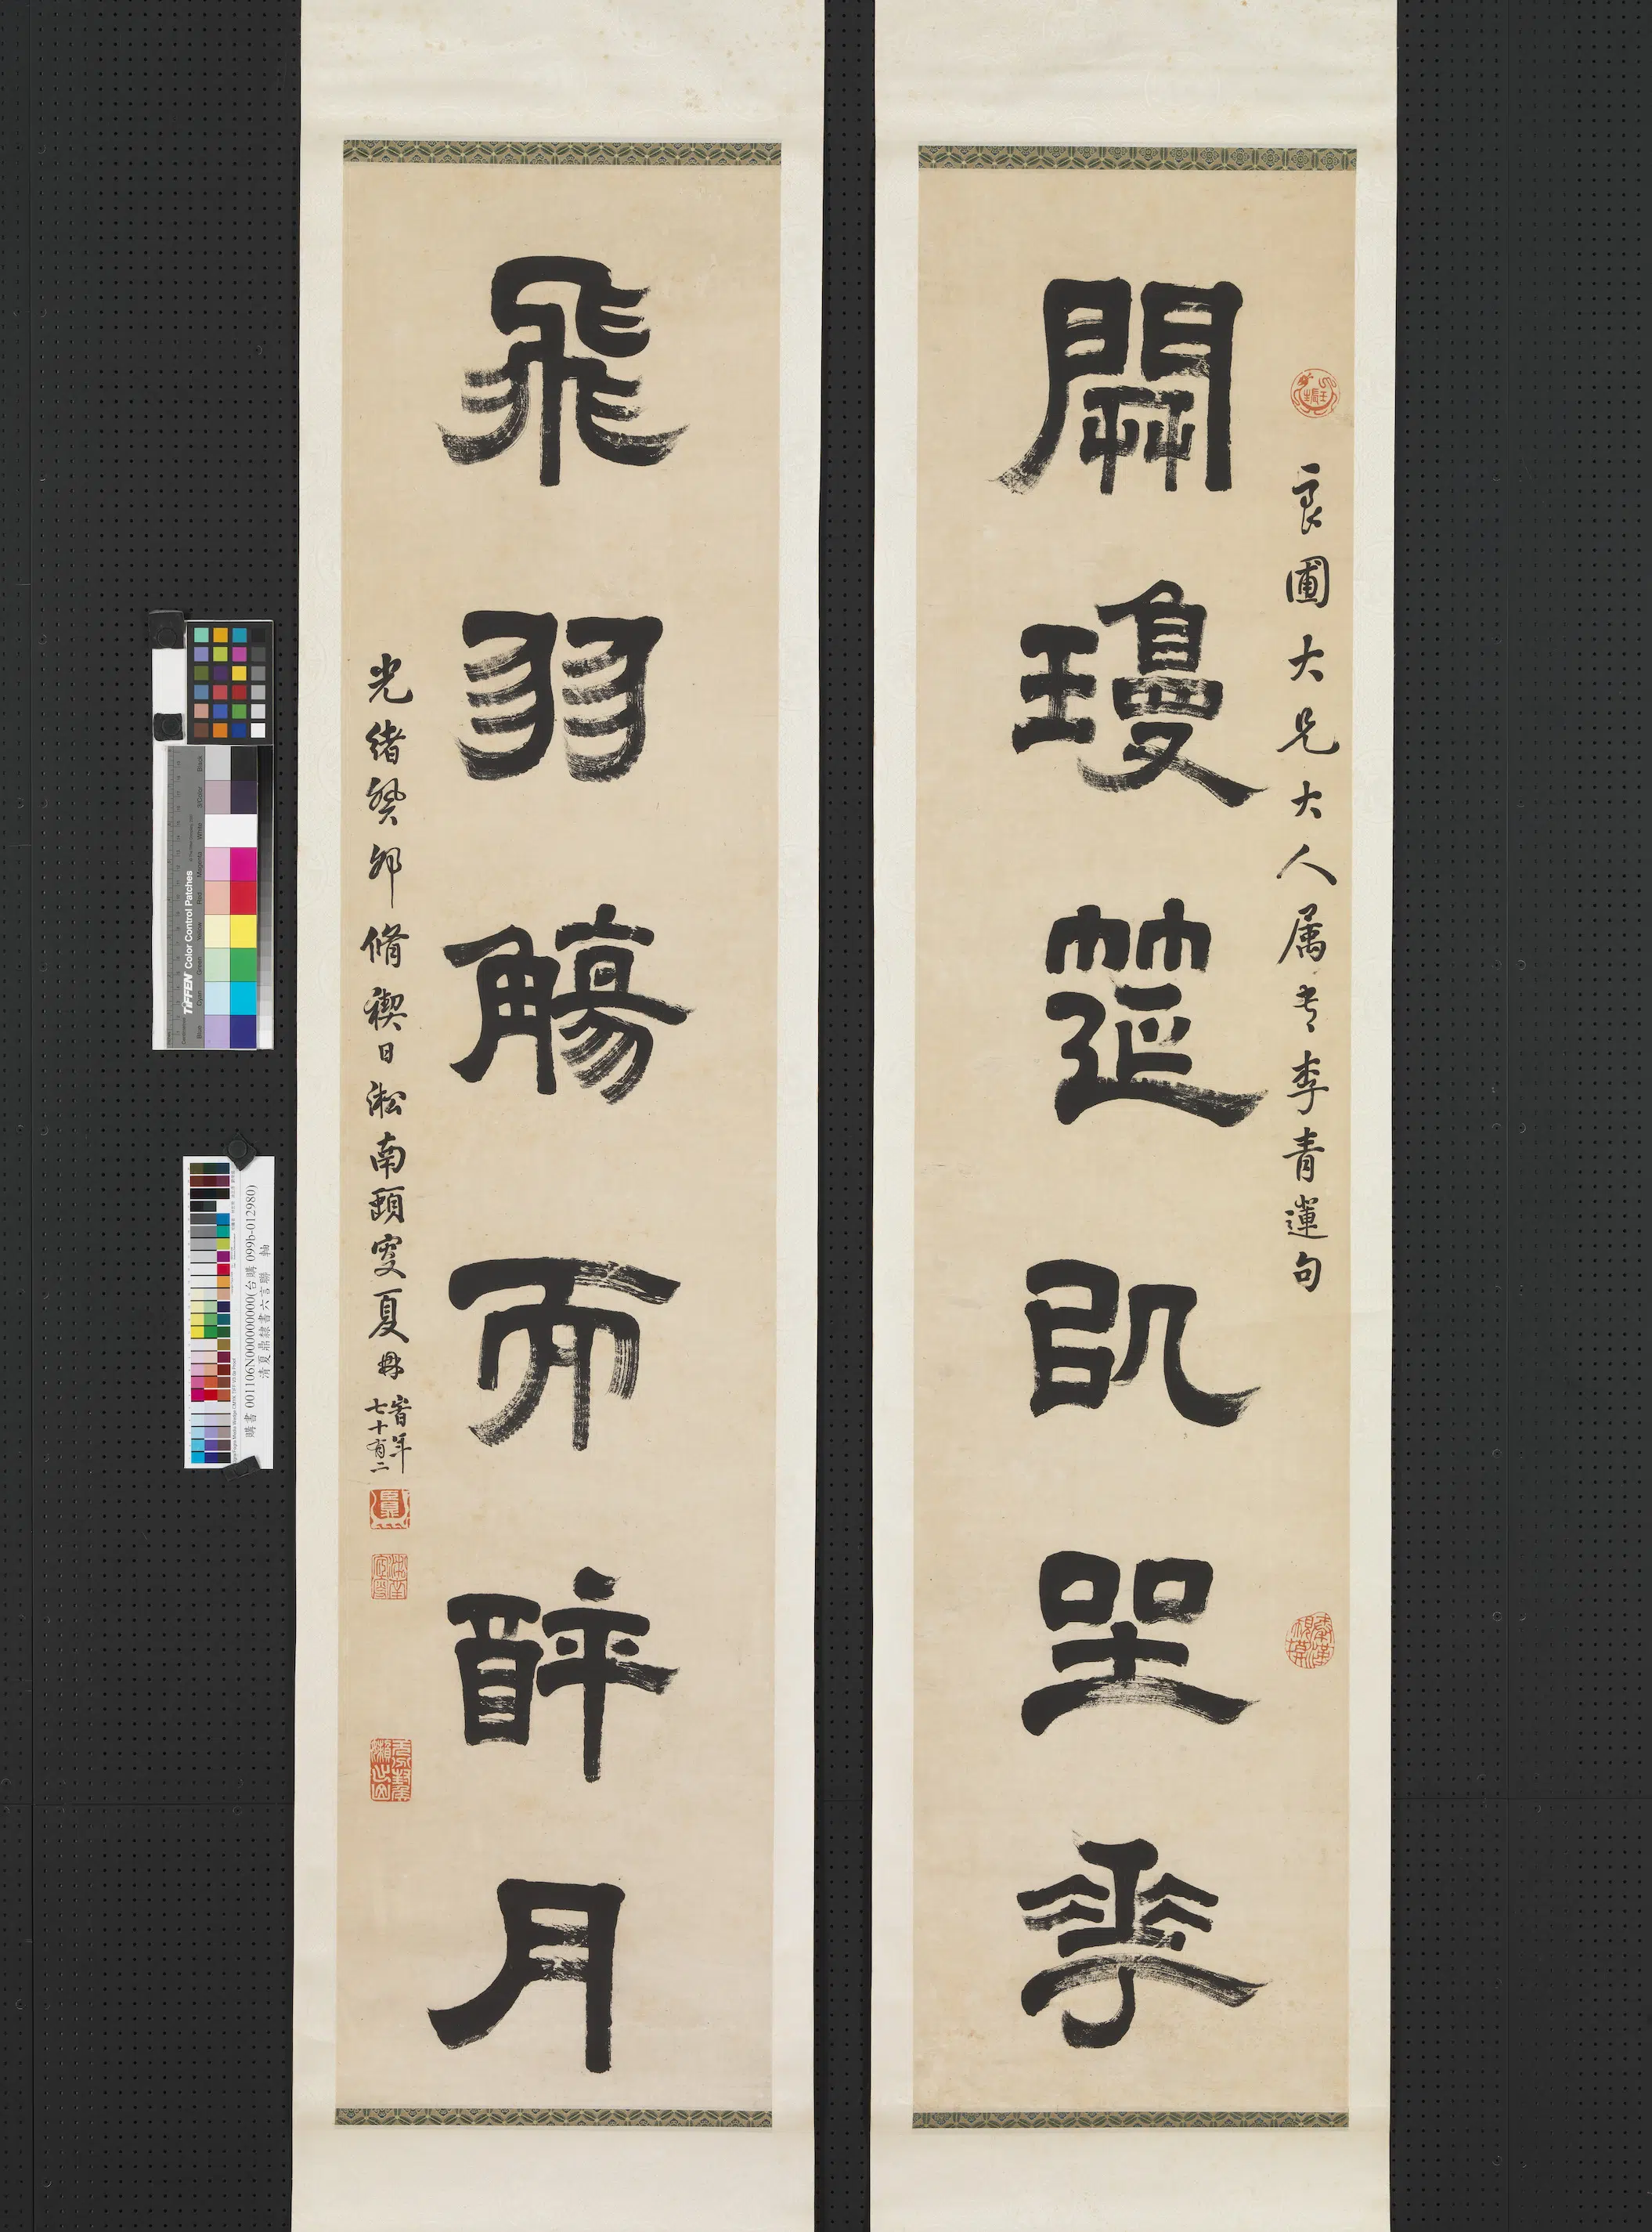 開瓊筵㕥坐花
良圃大兄大人属書李青蓮句
飛羽觴而醉月
光緒癸卯脩禊日淞南頤叟夏鼎
旹年
七十有二
TIFFEN Color Control Patches
Blue Cyan Green Yellow Red Magenta White 3/Color Black
購書 001106N000000000(台購 099b-012980)
清夏鼎隸書六言聯 軸